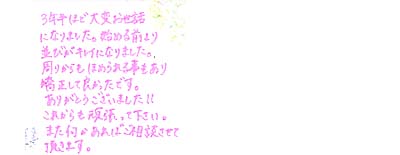 3年半ほど大変お世話
になりました。始める前より
並びがキレイになりました。
周りからもほめられる事もあり
矯正して良かったです。
ありがとうございました!!
これからも頑張って下さい。
また何かあればご相談させて
頂きます。